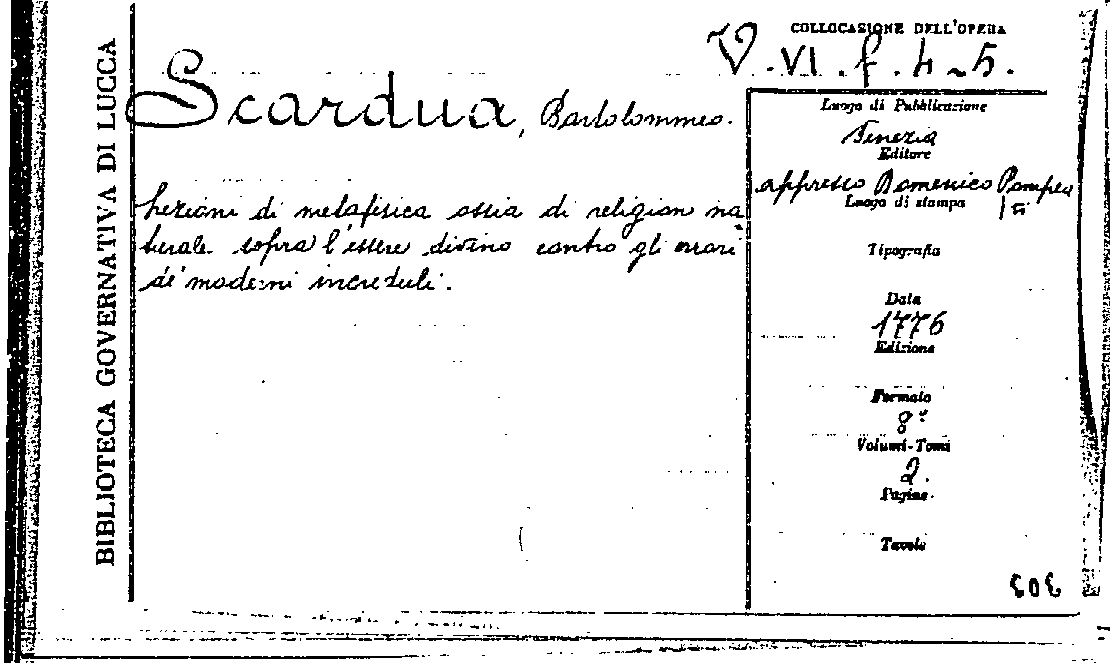 BIBLIOTECA GOVERNATIVA DI LUCCA
COLLOCAZIONE DELL'OPERA
V. VI. f. 4-5.
Scardua, Bartolommeo.
Lezioni di metafisica ossia di religion na
turale sopra l'essere divino contro gli errori
de' moderni increduli.
Luogo di Pubblicazione
Venezia
Editore
appresso Domenico Pompea
ti
Luogo di stampa
Tipografia
Data
1776
Edizione
Formato
8°
Volumi-Tomi
2.
Pagine
Tavole